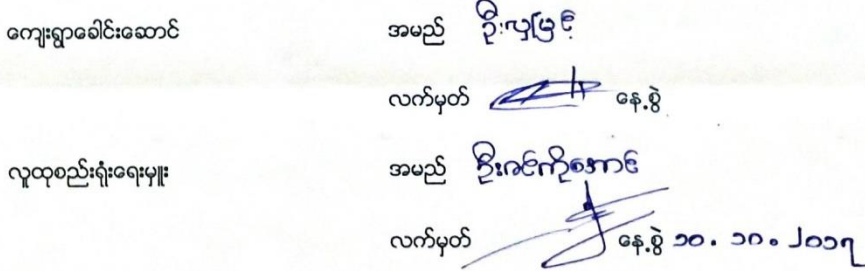 ကျေးရွာခေါင်းဆောင် အမည် ဦးလှမြင့်
လက်မှတ် နေ့စွဲ
လူထုစည်းရုံးရေးမှူး အမည် ဦးဇင်ကိုအောင်
လက်မှတ် နေ့စွဲ ၁၀.၁၀.၂၀၁၇